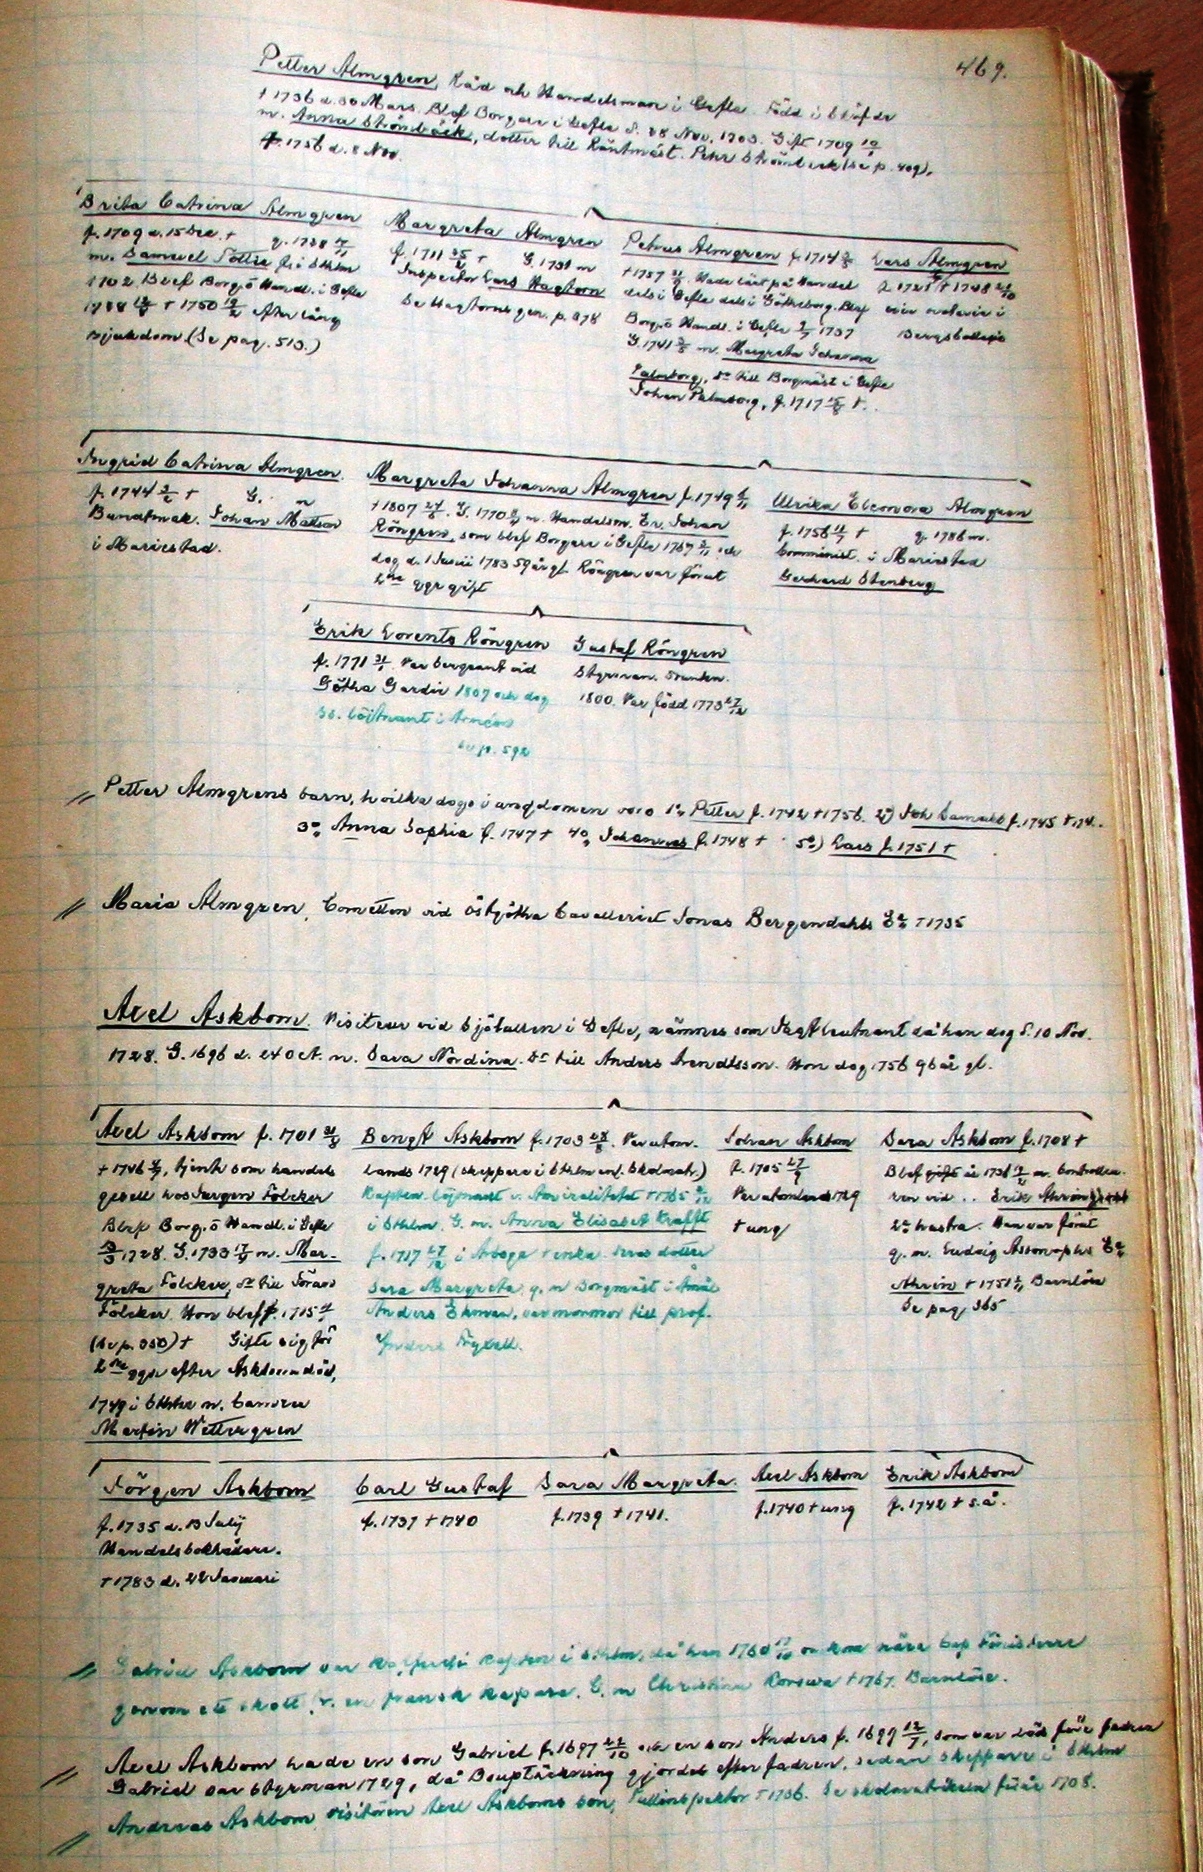 469.
Petter Almgren, Råd och Handelsman i Gefle. Född i
† 1736 d. 30 Mars. Blef Borgare i Gefle d. 28 Nov. 1703. Gift 1709
m. Anna Strömbäck, dotter till Räntmäst. Pehr Strömbeck (se p. 409).
† 1756 d. 8 Nov.
Brita Catrina Almgren
f. 1709 d. 15 Dec. † g. 1728
m. Samuel Tottie f. i Sthlm
1702. Blef Borg. o Handl. i Gefle
† 1750 19/2 efter lång
sjukdom (Se pag. 513.)
Margreta Almgren
f. 1711 25/2 † G. 1731 m
Inspector Lars Hagborn
Se Hagborns gen. p. 278
Petrus Almgren f. 1714
† 1757. Hade lärt på Handel
dels i Gefle dels i Götheborg. Blef
Borg. o Handl. i Gefle 1737
G. 1741 m. Margreta Johanna
Palmborg, dr till Borgmäst i Gefle
Johan Palmborg, f. 1717 †.
Lars Almgren
f. 1721 † 1748
i
Bergskollegie
Ingrid Catrina Almgren
f. 1744 † G. m
Buntmak. Johan Matson
i Mariestad.
Margreta Johanna Almgren f. 1749
† 1807. G. 1770 m. Handelsm. Er. Johan
Röngren, som blef Borgare i Gefle 1767 och
dog d. 1 Junii 1783 59 år gl. Röngren var förut
2ne ggr gift
Ulrika Eleonora Almgren
f. 1756 † g. 1786 m.
Comminist. i Mariestad
Gerhard Stenberg
Erik Lorents Röngren
f. 1771 31/1. Var Sergeant vid
Götha Gardie 1807 och dog
ss. Löjtnant i Arméen
se p. 592
Gustaf Röngren
Styrman. Drunkn.
1800. Var född 1773 27/12
// Petter Almgrens barn, hvilka dogo i ungdomen voro 1o Petter f. 1742 † 1756. 2o) Joh Samuel f. 1745 † 174..
3o Anna Sophia f. 1747 † 4o Johannes f. 1748 † 5o) Lars f. 1751 †
// Maria Almgren, Cornetten vid Östgötha Cavalleriet Jonas Bergendahls Ea † 1735
Axel Askbom. Visiteur vid Sjötullen i Gefle, nämnes som Jagtleutnant då han dog d. 10 Nov.
1728. G. 1696 d. 24 Oct. m. Sara Nordina. dr till Anders Arendtsson. Hon dog 1756 96 år gl.
Axel Askbom f. 1701 31/8
† 1746, tjent som handels
gesell hos Jurgen Fölcker
Blef Borg. o Handl. i Gefle
1728. G. 1733 m. Mar-
greta Fölcker, dr till Jöran
Fölcker. Hon blef f. 1715
(se p. 350) † Gifte sig för
2ne ggn efter Askboms död,
1749 i Sthlm m. Camrer
Martin Wettergren
Bengt Askbom f. 1703 28/8. Var utom-
lands 1729 (skeppare i Sthlm enl. Skolmatr.)
Kapten Löjtnant v. Amiralitetet † 1765
i Sthlm. G. m. Anna Elisabet Krafft
f. 1717 27/12 i Arboga. Deras dotter
Sara Margreta, g. m Borgmäst i Åmål
Anders Ekman, var mormor till prof.
Anders Fryxell.
Johan Askbom
f. 1705 27/9
Var utomlands 1729
† ung
Sara Askbom f. 1708 †
Blef gift år 1736 m. Controlleu-
ren vid .. Erik Ahrin
2a hustru. Han var förut
g. m. Ludvig Ea
Ahrin † 1751, Barnlösa
Se pag 365
Jörgen Askbom
f. 1735 d. 13 Julij
Handelsbokhållare.
† 1783 d. 22 Januari
Carl Gustaf
f. 1737 † 1740
Sara Margreta.
f. 1739 † 1741.
Axel Askbom
f. 1740 † ung
Erik Askbom
f. 1742 † s.å.
// Gabriel Askbom var Kapten i Sthlm, då han 1760 omkom nära Cap Finisterre
genom ett skott fr. en fransk kapare. G. m Christina † 1767. Barnlösa.
// Axel Askbom hade en son Gabriel f. 1697 22/10 och en son Anders f. 1699 12/7, som var död före fadren
Gabriel var Styrman 1729, då Bouptäckning gjordes efter fadren, sedan skeppare i Sthlm
// Andreas Askbom, visitören Axel Askboms son, Tullinspektor † 1736. Se skolmatrikeln för år 1708.